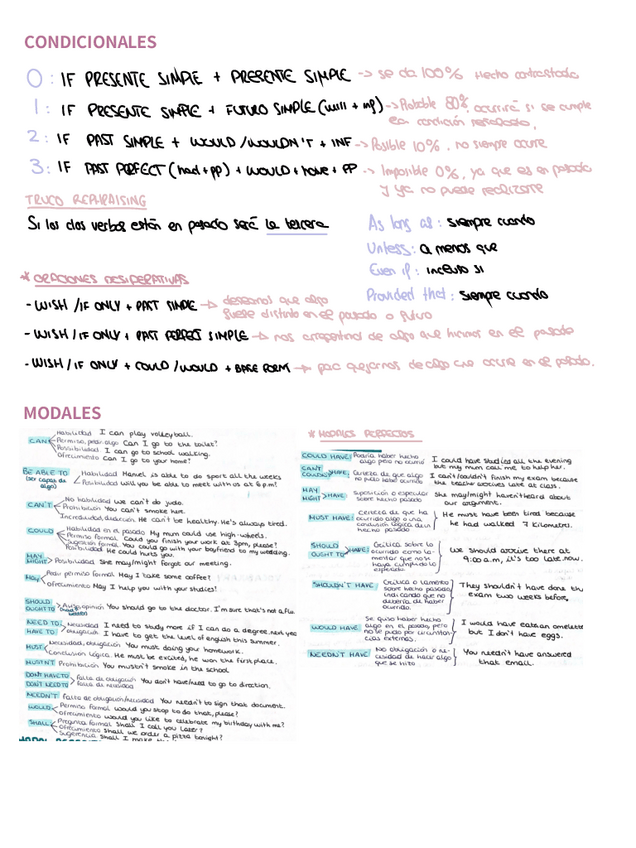 CONDICIONALES
0: IF PRESENTE SIMPLE + PRESENTE SIMPLE -> se da 100% Hecho contrastado
1: IF PRESENTE SIMPLE + FUTURO SIMPLE (will + inf) -> Probable 80%, ocurrirá si se cumple
la condición
2: IF PAST SIMPLE + WOULD/WOULDN'T + INF -> Posible 10%, no siempre ocurre
3: IF PAST PERFECT (had+pp) + WOULD + have + PP -> Imposible 0%, ya que es en pasado
y ya no puede realizarse
TRUCO REPHRAISING
Si los dos verbos están en pasado será la tercera
As long as: siempre cuando
Unless: a menos que
Even if: incluso si
Provided that: siempre cuando
* ORACIONES DESIDERATIVAS
- WISH / IF ONLY + PAST SIMPLE -> deseamos que algo
fuese distinto en el pasado o futuro
- WISH / IF ONLY + PAST PERFECT SIMPLE -> nos arrepentimos de algo que hicimos en el pasado
- WISH / IF ONLY + COULD / WOULD + BASE FORM -> para quejarnos de algo que ocurre en el pasado.
MODALES
CAN
Habilidad I can play volleyball.
Permiso, pedir algo Can I go to the toilet?
Possibilidad I can go to school walking.
Ofrecimiento Can I go to your home?
BE ABLE TO
(ser capaz de algo)
Habilidad Manuel is able to do sport all the weeks
Posibilidad Will you be able to meet with us at 6 p.m?
CAN'T
No habilidad We can't do judo.
Prohibición You can't smoke here.
Incredulidad, deducción He can't be healthy. He's always tired.
COULD
Habilidad en el pasado My mum could use high-wheels.
Permiso formal Could you finish your work at 3pm, please?
Sugestión formal You could go with your boyfriend to my wedding.
Posibilidad He could hurts you.
MAY
MIGHT
Posibilidad She may/might forgot our meeting.
MAY
Pedir permiso formal May I take some coffee?
Ofrecimiento May I help you with your studies?
SHOULD
OUGHT TO
You should go to the doctor. I'm sure that's not a flu.
NEED TO
HAVE TO
Necesidad I need to study more if I can do a degree next year
obligación I have to get the level of english this summer.
MUST
Necesidad, obligación You must doing your homework.
Conclusión lógica. He must be excited, he won the first place.
MUSTN'T Prohibición You mustn't smoke in the school.
DON'T HAVE TO
DON'T NEED TO
Falta de obligación
Falta de necesidad
You don't have/need to go to direction.
NEEDN'T Falta de obligación/necesidad You needn't to sign that document.
WOULD
Permiso formal Would you stop to do that, please?
Ofrecimiento Would you like to celebrate my birthday with me?
SHALL
Pregunta formal Shall I call you later?
Ofrecimiento Shall we order a pizza tonight?
Sugerencia Shall I make
* MODALES PERFECTOS
COULD HAVE
Podría haber hecho
algo pero no ocurrió
I could have studied all the evening
but my mum call me to help her.
CAN'T
COULDN'T HAVE
Certeza de que algo
no pudo haber ocurrido
I can't/couldn't finish my exam because
the teacher arrives late at class.
MAY
MIGHT HAVE
Suposición o especular
sobre hecho pasado
She may/might haven't heard about
our argument.
MUST HAVE
Certeza de que ha
ocurrido algo o una
conclusión lógica de un
hecho pasado
He must have been tired because
he had walked 7 kilometri.
SHOULD
OUGHT TO HAVE
Crítica sobre lo
ocurrido como la-
mentar que no se
haya cumplido lo
esperado
We should arrive there at
9:00 a.m, it's too late now.
SHOULDN'T HAVE
Crítica o lamento
sobre hecho pasado
indicando que no
debería de haber
ocurrido
They shouldn't have done the
exam two weeks before,
WOULD HAVE
Se quiso haber hecho
algo en el pasado, pero
no se pudo por circunstan-
cias externas.
I would have eat an omelette
but I don't have eggs.
NEEDN'T HAVE
No obligación o ne-
cesidad de hacer algo
que se hizo
You needn't have answered
that email.